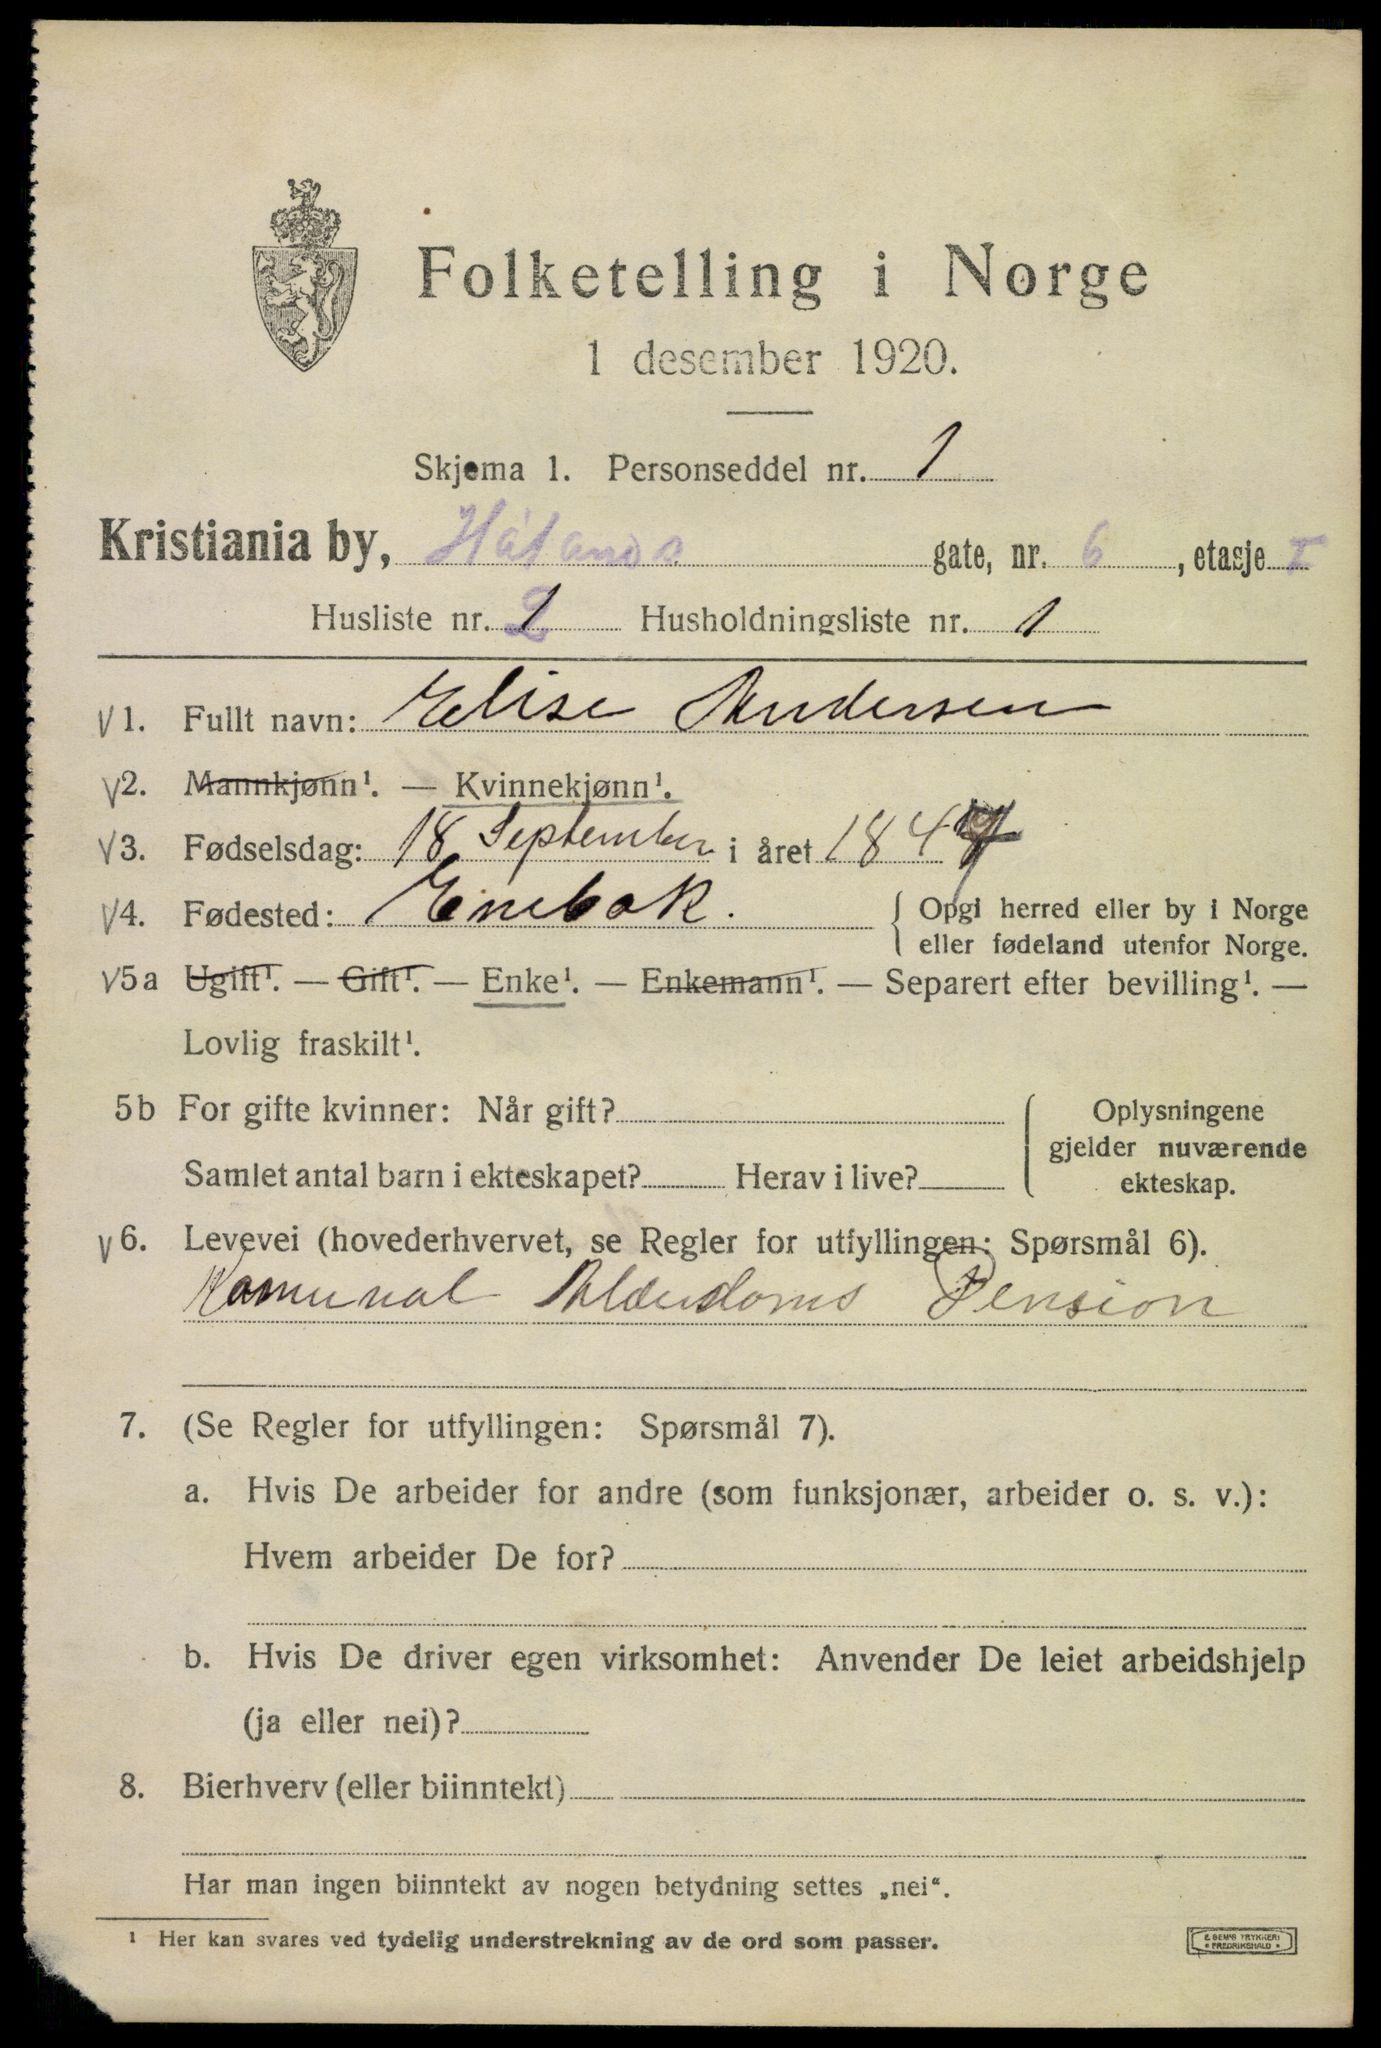 Folketelling i Norge
1 desember 1920.
Skjema 1. Personseddel nr. 1
Kristiania by, gate, nr. 6, etasje I
Husliste nr. 2 Husholdningsliste nr. 1
V 1. Fullt navn: Elise Andersen
V 2. Mannkjønn¹. — Kvinnekjønn¹.
V 3. Fødselsdag: 18 September i året 184
V 4. Fødested: Enebak. { Opgi herred eller by i Norge
eller fødeland utenfor Norge.
V 5a Ugift¹. — Gift¹. — Enke¹. — Enkemann¹. — Separert efter bevilling¹. —
Lovlig fraskilt¹.
5b For gifte kvinner: Når gift?
Samlet antal barn i ekteskapet? Herav i live?
{ Oplysningene
gjelder nuværende
ekteskap.
V 6. Levevei (hovederhvervet, se Regler for utfyllingen: Spørsmål 6).
Komunal Alderdoms Pension
7. (Se Regler for utfyllingen: Spørsmål 7).
a. Hvis De arbeider for andre (som funksjonær, arbeider o. s. v.):
Hvem arbeider De for?
b. Hvis De driver egen virksomhet: Anvender De leiet arbeidshjelp
(ja eller nei)?
8. Bierhverv (eller biinntekt)
Har man ingen biinntekt av nogen betydning settes „nei“.
¹ Her kan svares ved tydelig understrekning av de ord som passer.
E SEM'S TRYKKERI
• FREDRIKSHALD •